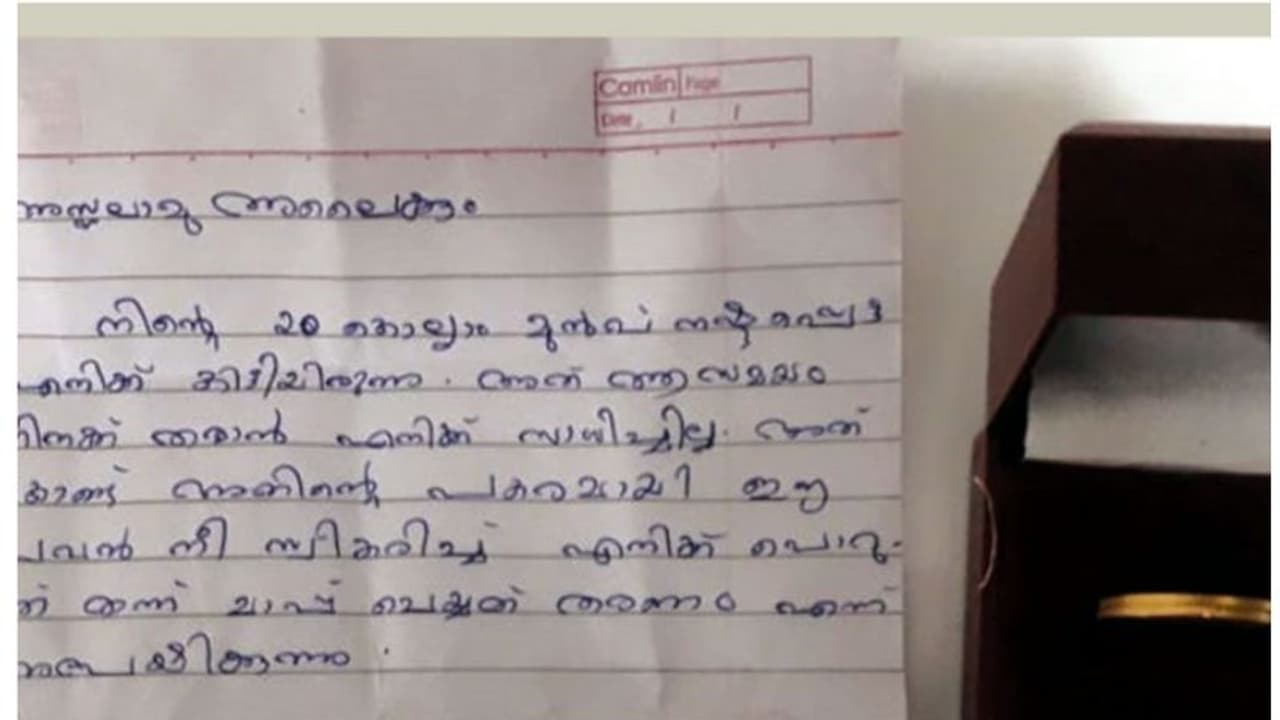 Camlin Page
Date / /
അസ്സലാമു അലൈക്കും
നിന്റെ 20 കൊല്ലം മുൻപ് നഷ്ടപ്പെട്ട
എനിക്ക് കിട്ടിയിരുന്നു. അത് ആ സമയം
നിനക്ക് തരാൻ എനിക്ക് സാധിച്ചില്ല. അത്
കൊണ്ട് അതിന്റെ പകരമായി ഈ
പവൻ നീ സ്വീകരിച്ച് എനിക്ക് പൊറു-
ത് തന്ന് മാപ്പ് ചെയ്ത് തരണം എന്ന്
അപേക്ഷിക്കുന്നു.